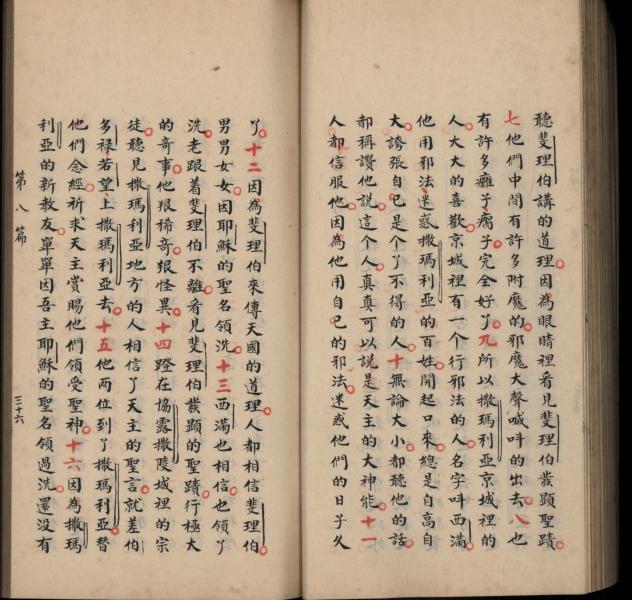 聽斐理伯講的道理。因為眼睛裡看見斐理伯發顯聖蹟。
七他們中間有許多附魔的。邪魔大聲喊呌的出去。八也
有許多癱子、瘸子。完全好了。九所以撒瑪利亞京城裡的
人。大大的喜歡。京城裡有一個行邪法的人。名字呌西滿。
他用邪法、迷惑撒瑪利亞的百姓。開起口來。總是自高自
大。誇張自己是个了不得的人。十無論大小。都聽他的話。
都稱讚他說。這个人。真真可以說是天主的大神能。十一
人都信服他。因為他用自己的邪法。迷惑他們的日子久
了。十二因為斐理伯來傳天國的道理。人都相信斐理伯。
男男女女。因耶穌的聖名領洗。十三西滿也相信。也領了
洗。老跟着斐理伯不離。看見斐理伯發顯的聖蹟。行極大
的奇事。他狠稀奇。狠怪異。十四蹬在協露撒陵城裡的宗
徒。聽見撒瑪利亞地方的人相信了天主的聖言。就差伯
多祿若望、上撒瑪利亞去。十五他兩位到了撒瑪利亞。替
他們念經。祈求天主賞賜他們領受聖神。十六因為撒瑪
利亞的新教友。單單因吾主耶穌的聖名領過洗。還沒有
第八篇 三十六